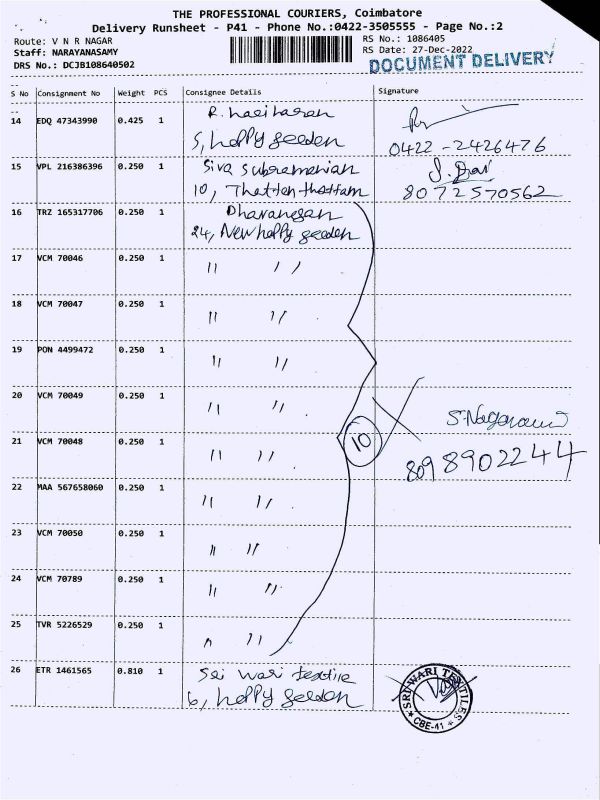 THE PROFESSIONAL COURIERS, Coimbatore
Delivery Runsheet - P41 - Phone No.:0422-3505555 - Page No.:2
Route: V N R NAGAR
RS No.: 1086405
Staff: NARAYANASAMY
RS Date: 27-Dec-2022
DRS No.: DCJB108640502
DOCUMENT DELIVERY
S No Consignment No Weight PCS Consignee Details Signature
14 EDQ 47343990 0.425 1 R. hariharan
5, hoppy geeden 0422-2426476
15 VPL 216386396 0.250 1 Siva Subramanian
10, Thottan thottam 8072570562
16 TRZ 165317706 0.250 1 Dharanesan
24, New hoppy geeden
17 VCM 70046 0.250 1 " "
18 VCM 70047 0.250 1 " "
19 PON 4499472 0.250 1 " "
20 VCM 70049 0.250 1 " "
10
21 VCM 70048 0.250 1 " " 8098902244
22 MAA 567658060 0.250 1 " "
23 VCM 70050 0.250 1 " "
24 VCM 70789 0.250 1 " "
25 TVR 5226529 0.250 1 " "
26 ETR 1461565 0.810 1 Sri wari textile
6, hoppy geeden
SRI WARI TEXTILES
* CBE-41 *